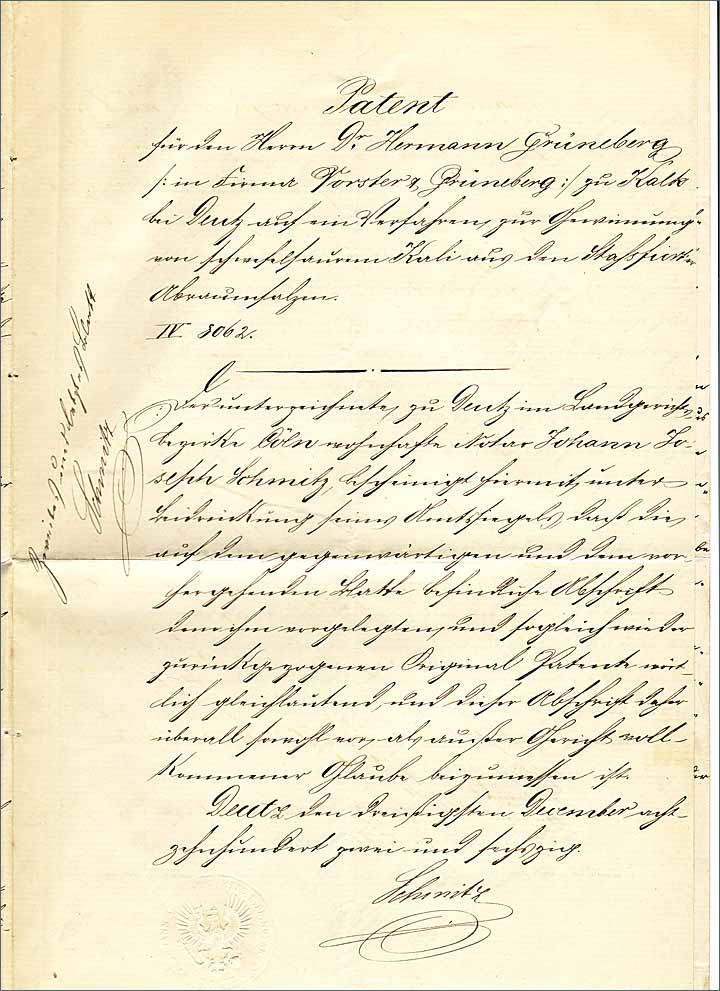 Patent
für den Herrn Dr. Hermann Grüneberg
/: in Firma Vorster & Grüneberg :/ zu Kalk
bei Deutz auf ein Verfahren zur Gewinnung
von schwefelsaurem Kali aus den Staßfurter
Abraumsalzen.
IV 8062.
Der unterzeichnete, zu Deutz im Landgerichts-
bezirke Cöln wohnhafte Notar Johann Jo-
seph Schmitz, bescheinigt hiermit, unter
Beidrückung seines Amtssiegels, daß die
auf dem gegenwärtigen und dem vor-
hergehenden Blatte befindliche Abschrift
dem ihm vorgelegten, und sogleich wieder
zurückgezogenen Original Patente wört-
lich gleichlautend, und dieser Abschrift daher
überall sowohl vor, als außer Gericht voll-
kommener Glaube beizumessen ist.
Deutz den dreißigsten December acht-
zehnhundert zwei und sechszig.
Schmitz
Zweites und letztes Blatt
Schmitz